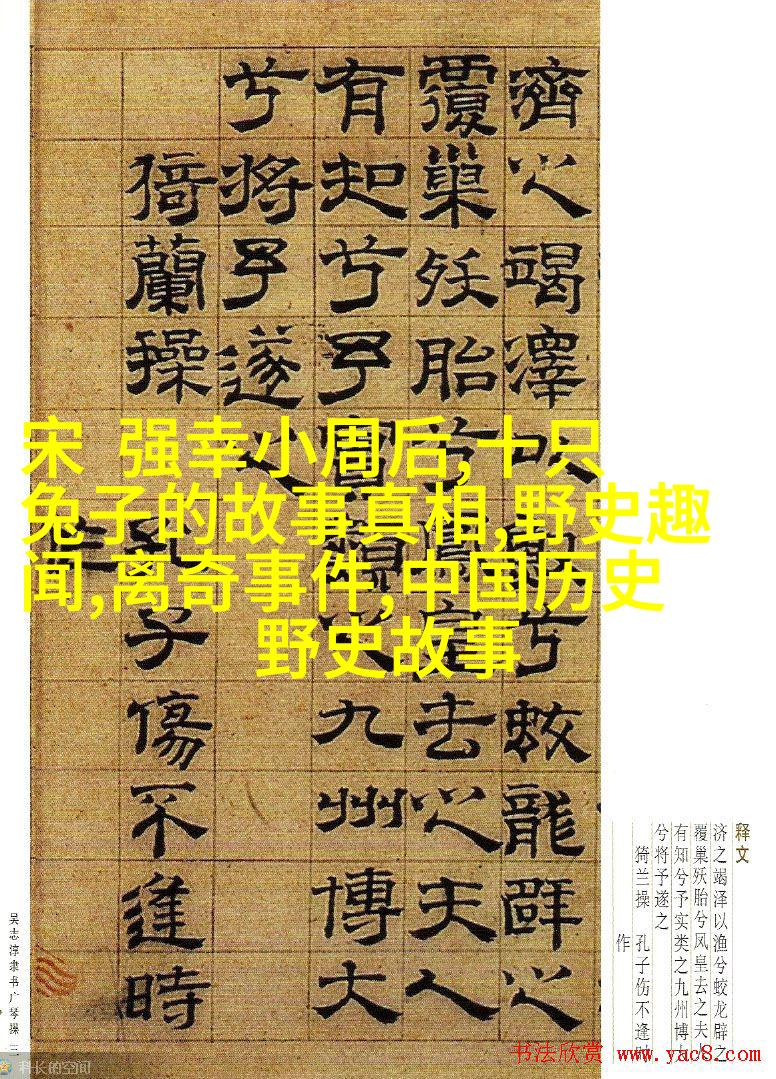 濟之竭澤以漁兮蛟龍辟之
覆巢殀胎兮鳳皇去之夫人
有知兮予實類之九州博大
兮將予遂之
猗蘭操 孔子傷不逢時
作
宋 强幸小周后,十只
兔子的故事真相,野史趣
闻,离奇事件,中国历史
野史故事
释文
济之竭泽以渔兮蛟龙辟之
覆巢殀胎兮凤皇去之夫人
有知兮予实类之九州博
兮将予遂之
猗兰操 孔子伤不逢时
作
吴志淳隶书广琴操 三
科长的空间
书法欣赏 www.yac8.com